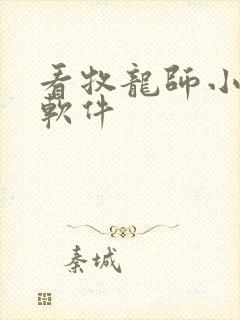 看牧龍師小
軟件
秦城